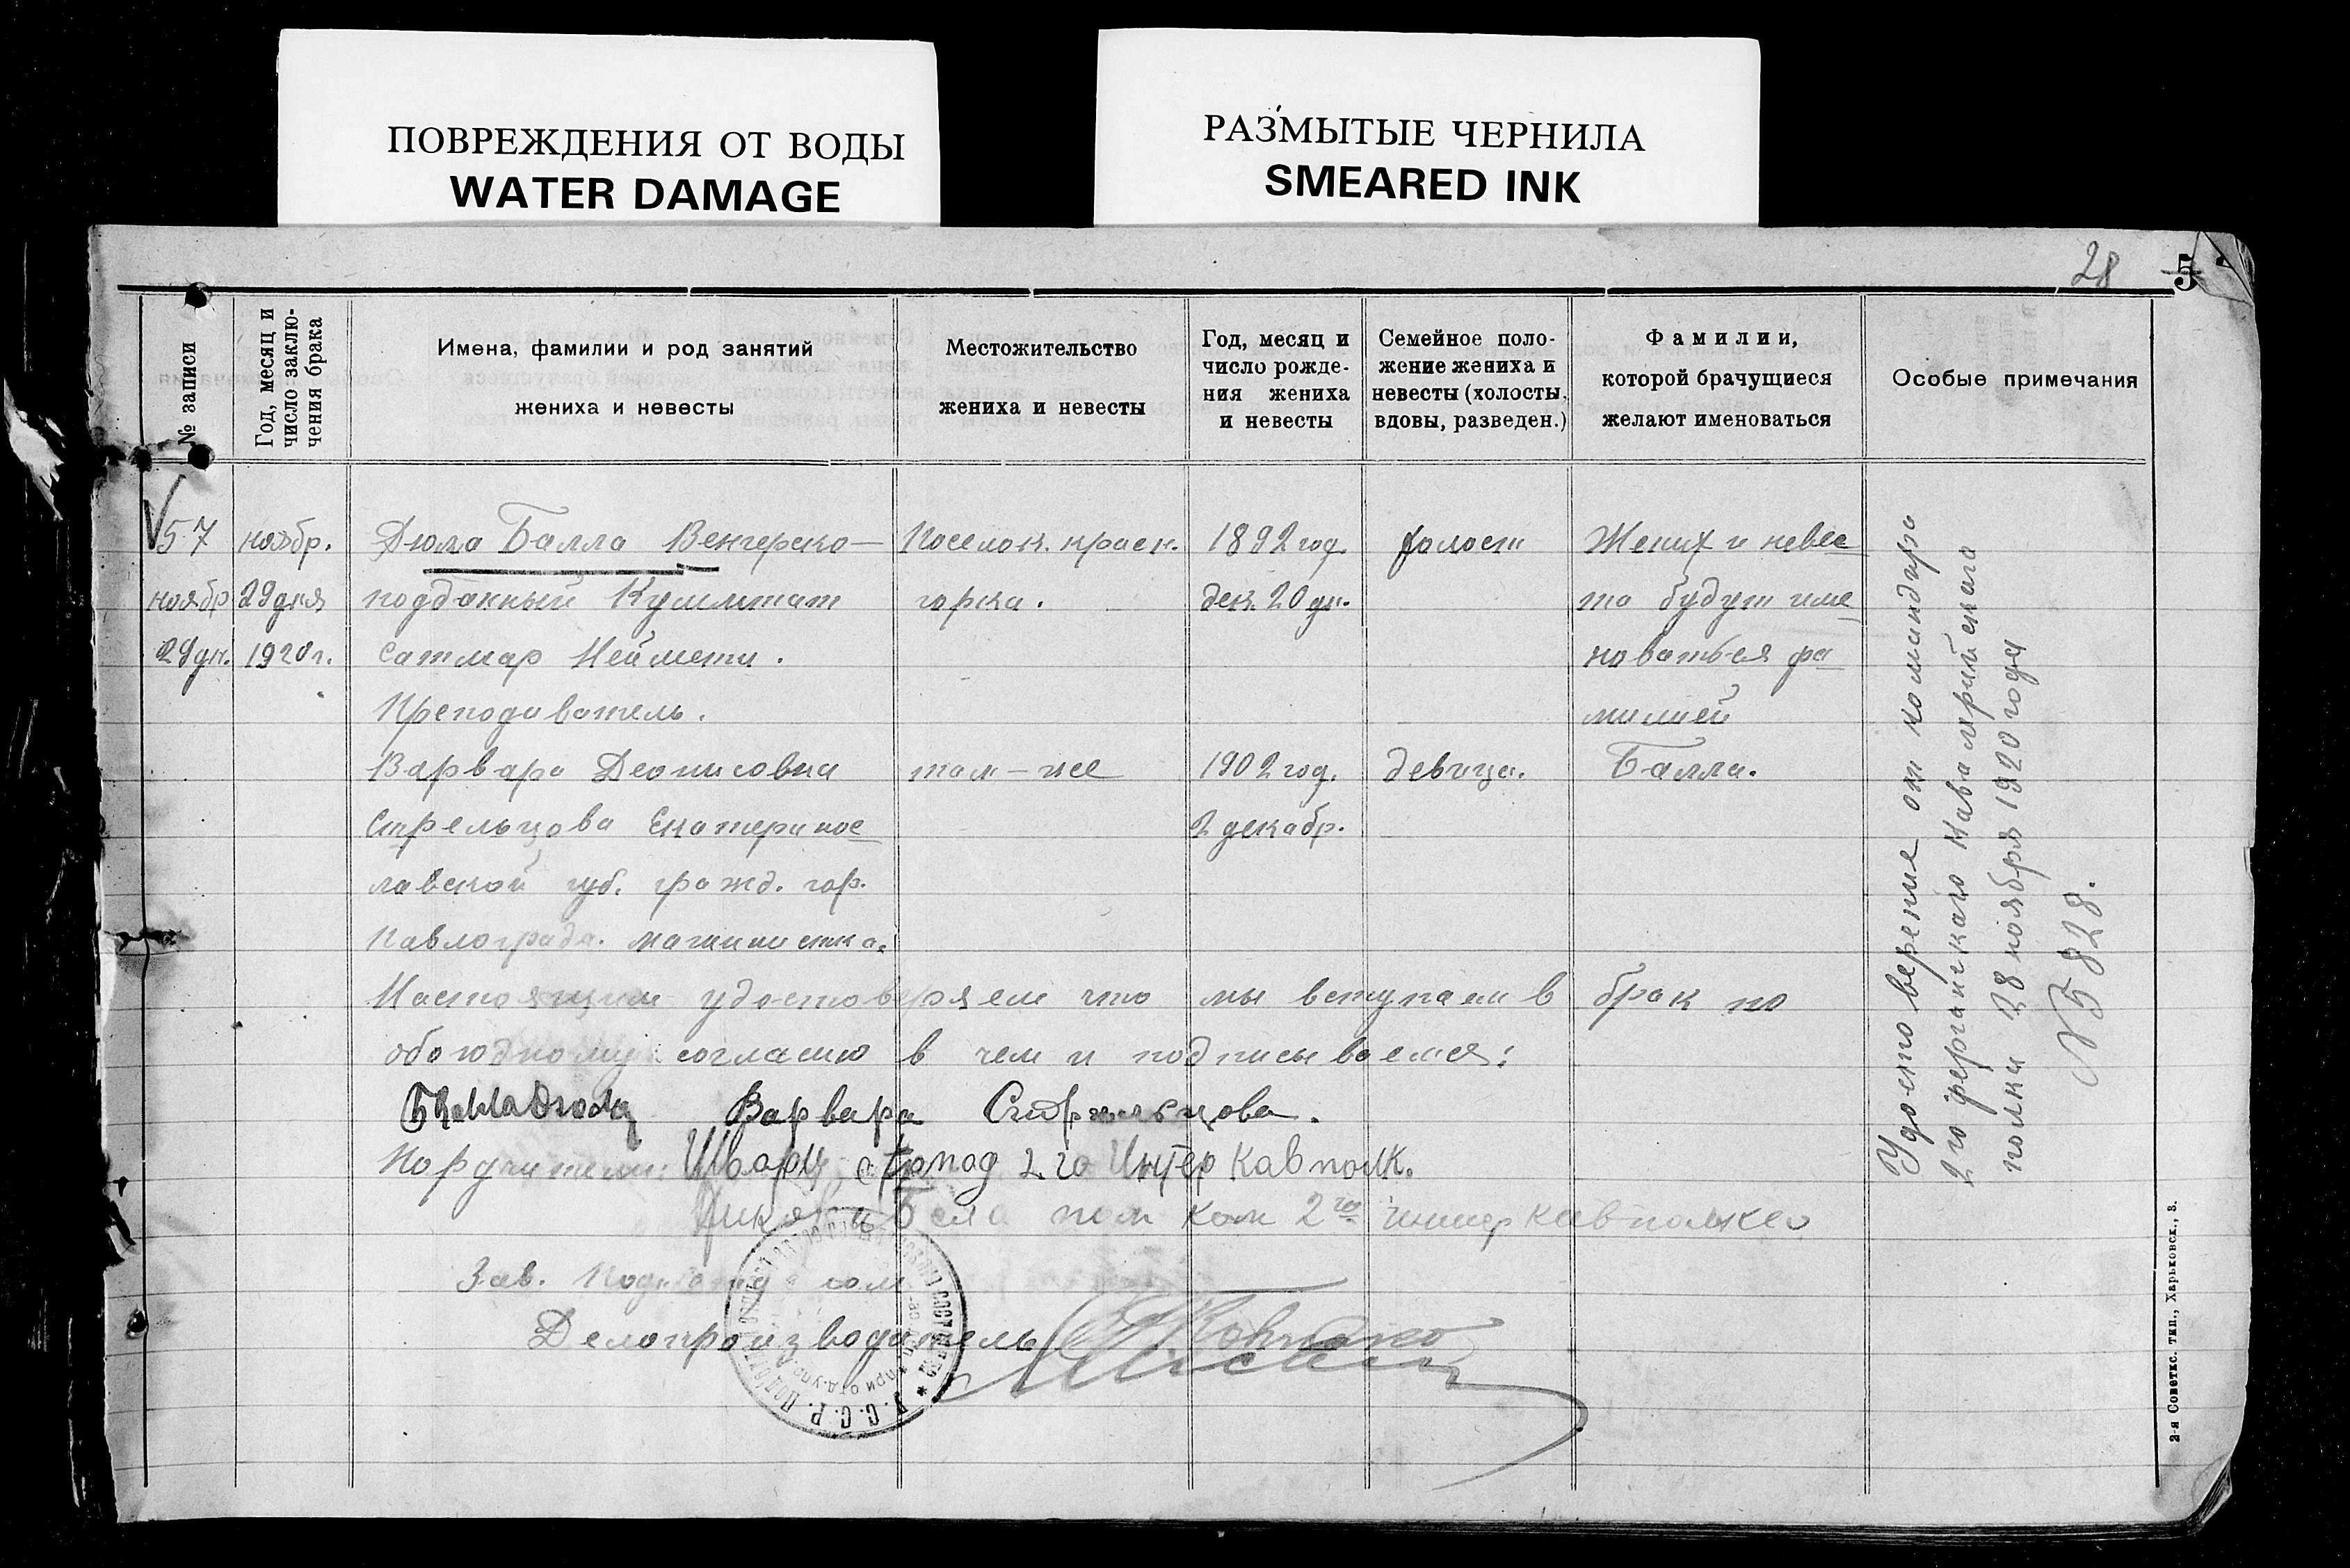 ПОВРЕЖДЕНИЯ ОТ ВОДЫ
WATER DAMAGE
РАЗМЫТЫЕ ЧЕРНИЛА
SMEARED INK
28 5
№ записи
Год, месяц и
число заклю-
чения брака
Имена, фамилии и род занятий
жениха и невесты
Местожительство
жениха и невесты
Год, месяц и
число рожде-
ния жениха
и невесты
Семейное поло-
жение жениха и
невесты (холосты,
вдовы, разведен.)
Фамилии,
которой брачущиеся
желают именоваться
Особые примечания
57
ноябр
29 дн.
ноябр.
29 дня
1920 г.
Дюла Балла Венгерско-
подданный
сатмар Неймети.
Преподаватель.
Поселок. красн.
горка.
1892 год.
дек. 20 дн.
холост
Жених и невес
та будут име
новаться фа
милией
Балла.
Варвара Деонисовна
Стрельцова Екатеринос
лавской губ. гражд. гор.
Павлограда. машинистка.
там-же
1902 год.
2 декабр.
девица.
Настоящим удостоверяем что мы вступаем в брак по
обоюдному согласию в чем и подписываемся:
Варвара Стрельцова.
Поручители: Шварц 2 го Интер Кавполк.
Бела пом ком 2го интер кавполка
Зав.
Делопроизводитель
У.С.С.Р.
Удостоверение от командира
2го ферганскаго Кавалрийскаго
полка 28 ноября 1920 года
№ 5828.
2-я Советск. тип., Харьковск., 3.